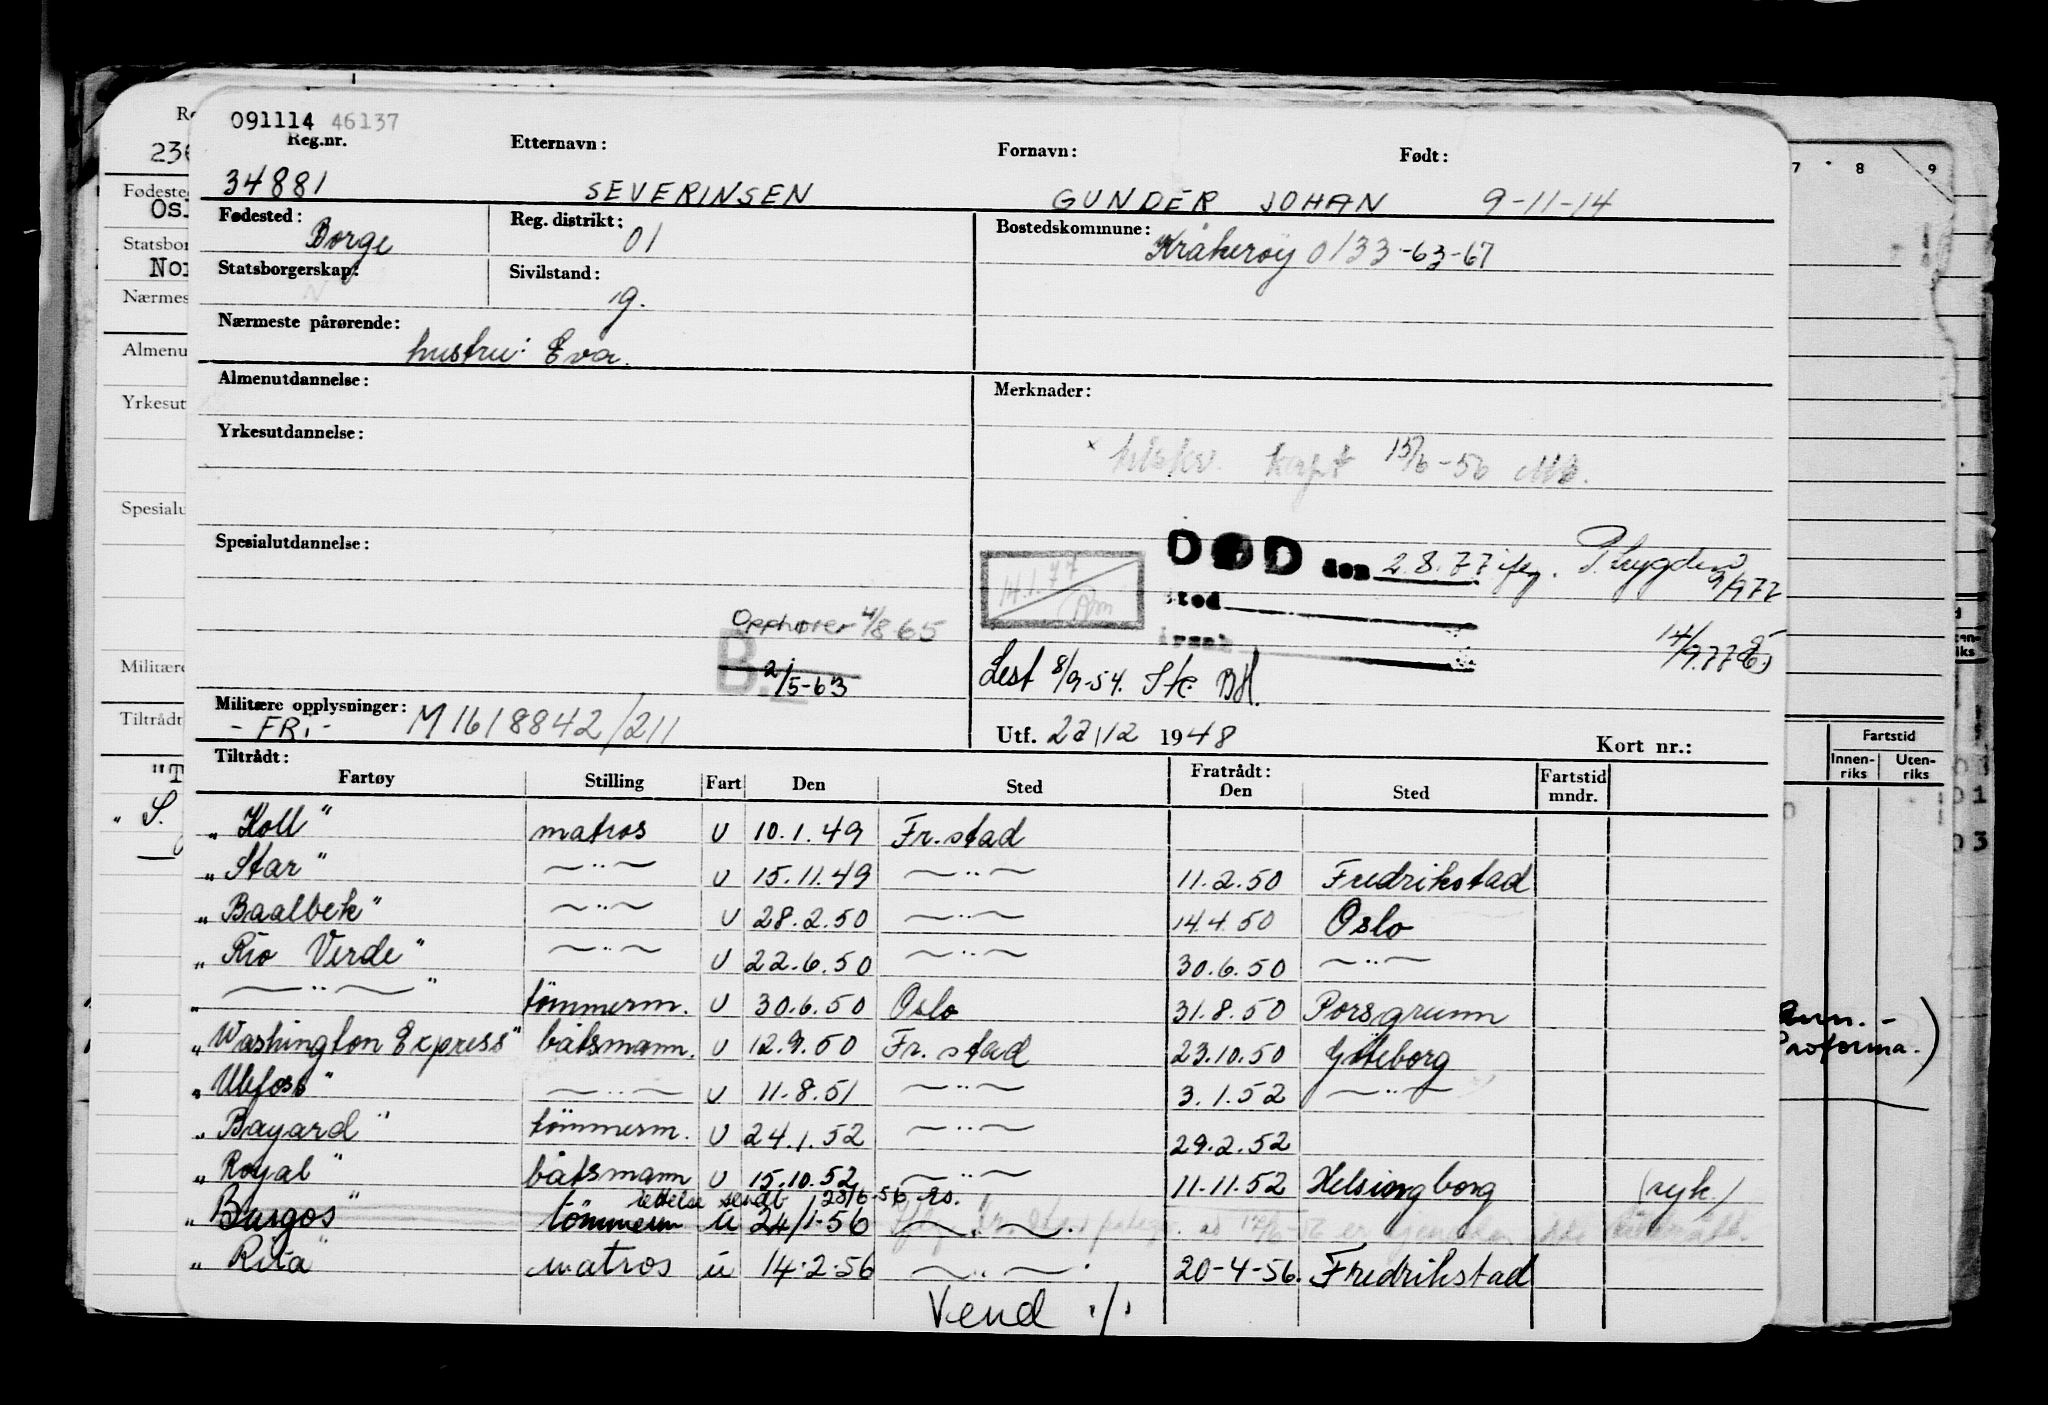 091114 46137
Reg.nr. Etternavn: Fornavn: Født:
34881 SEVERINSEN GUNDER JOHAN 9-11-14
Fødested: Borge Reg. distrikt: 01 Bostedskommune: Kråkerøy 0133-63-67
Statsborgerskap: N Sivilstand: g.
Nærmeste pårørende:
hustru: Eva.
Almenutdannelse: Merknader:
Yrkesutdannelse:
15/6-56
Spesialutdannelse:
DØD den 2.8.77 ifg. P. Lygden 9/9 77
14.1.77
sted
Opphører 4/8 65
årsak 14/9.77
B. 2/5-63
Lest 8/9-54. Stc. BH.
Militære opplysninger: M1618842/211
- FRi - Utf. 22/12 1948 Kort nr.:
Tiltrådt: Fratrådt:
Fartøy Stilling Fart Den Sted Den Sted Fartstid mndr.
"Koll" matros U 10.1.49 Fr.stad
"Star" —"— U 15.11.49 —"— 11.2.50 Fredrikstad
"Baalbek" —"— U 28.2.50 —"— 14.4.50 Oslo
"Rio Verde" —"— U 22.6.50 —"— 30.6.50 —"—
"—"—" tömmerm. U 30.6.50 Oslo 31.8.50 Porsgrunn
"Washington Express" båtsmann. U 12.9.50 Fr.stad 23.10.50 Göteborg
"Ulefoss" —"— U 11.8.51 —"— 3.1.52 —"—
"Bayard" tömmerm. U 24.1.52 —"— 29.2.52
"Royal" båtsmann U 15.10.52 —"— 11.11.52 Helsingborg (syk.)
sendt 23/6-56
"Burgos" tömmerm u 24/1-56 —"—
"Rita" matros u 14.2.56 —"— 20-4-56. Fredrikstad
Vend ./.
236
Fødested
Osl
Statsbor
Nor
Nærmes
Almenu
Yrkesut
Spesialu
Militære
Tiltrådt
"T
S.
7 8 9
Fartstid
Innen-riks Uten-riks
01
03
Ann. -
Proforma.)